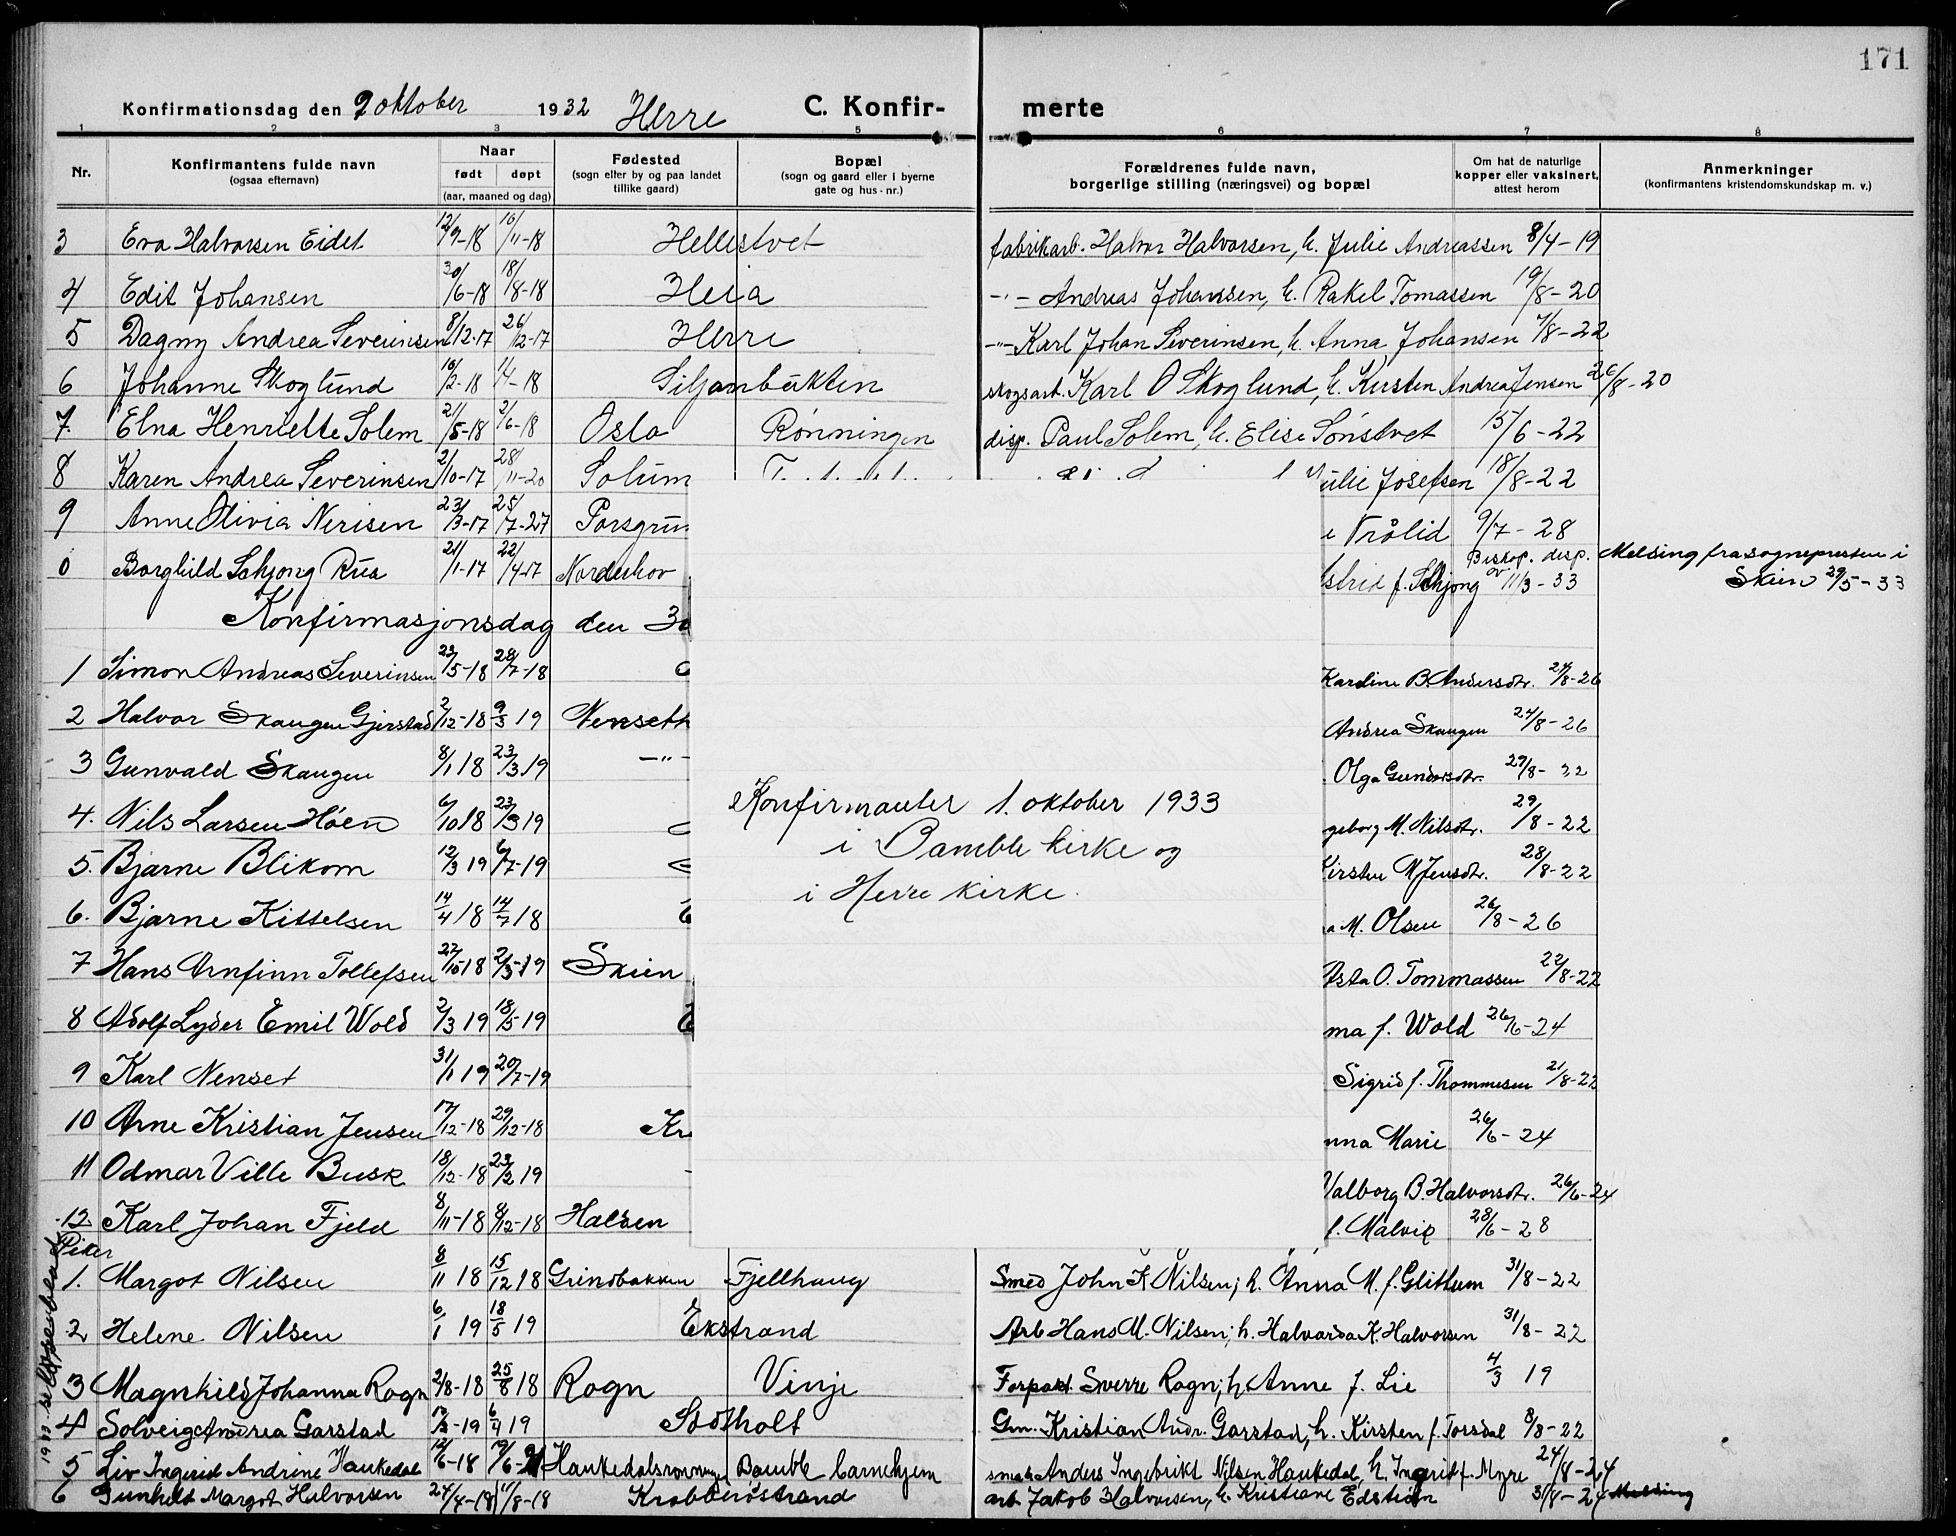 171
Konfirmationsdag den 9 oktober 1932 Herre C. Konfir- merte
1 2 3 5 6 7 8
Nr. Konfirmantens fulde navn (ogsaa efternavn) Naar født døpt (aar, maaned og dag) Fødested (sogn eller by og paa landet tillike gaard) Bopæl (sogn og gaard eller i byerne gate og hus-nr.) Forældrenes fulde navn, borgerlige stilling (næringsvei) og bopæl Om hat de naturlige kopper eller vaksinert, attest herom Anmerkninger (konfirmantens kristendomskundskap m. v.)
3 Eva Halvorsen Eidet 12/9-18 10/11-18 Hellestvet fabrikarb. Halvor Halvorsen, h. Julie Andreassen 8/4-19
4 Edit Johansen 30/6-18 18/8-18 Heia -"- Andreas Johansen, h. Rakel Tomassen 19/8-20
5 Dagny Andrea Severinsen 8/12-17 26/12-17 Herre -"- Karl Johan Severinsen, h. Anna Johansen 7/8-22
6 Johanne Skoglund 10/2-18 1/4-18 Siljanbukten skogsarb. Karl O Skoglund, h. Kirsten Andrea Jensen 26/8-20
7. Elna Henriette Solem 21/5-18 2/6-18 Oslo Rønningen disp. Paul Solem, h. Elise Sønstvet 15/6-22
8 Karen Andrea Severinsen 2/10-17 28/11-20 Solum Julie Josefsen 18/8-22
9 Anne Olivia Nerisen 23/3-17 25/7-27 Porsgrun e Vrålid 9/7-28
0 Borghild Schjong Rua 21/1-17 22/4-17 Norderhov strid f. Schjong Biskop. disp. av 11/3-33 Melding fra sognepresten i Skien 29/5-33
Konfirmasjonsdag den 30
1 Simon Andreas Severinsen 23/5-18 28/7-18 Kardine B. Andersdtr. 24/8-26
2 Halvor Skaugen Gjerstad 2/12-18 9/3 19 Nenseth Andrea Skaugen 24/8-26
3 Gunvald Skaugen 8/1 18 23/3 19 -"- Olga Gundersdtr. 29/8-22
4. Nils Larsen Høen 6/10 18 23/3 19 geborg M. Nilsdtr. 29/8-22
5. Bjarne Blikom 12/3 19 6/7-19 Kirsten M Jensdtr. 28/8-22
6. Bjarne Kittelsen 14/4 18 14/7 18 a M. Olsen 26/8-26
7 Hans Arnfinn Tollefsen 22/10 18 2/3-19 Skien Asta O. Tommassen 22/8-22
8 Adolf Lyder Emil Wold 2/3 19 18/5-19 E ma f. Wold 26/6-24
9 Karl Nenset 31/1 19 20/7-19 Sigrid f. Thommesen 21/8-22
10 Arne Kristian Jensen 17/12-18 29/12-18 Kr nna Marie 26/6-24
11 Odmar Ville Busk 18/12-18 23/2 19 Valborg B. Halvorsdtr. 26/6-24
12 Karl Johan Fjeld 8/11-18 8/12-18 Halsen f. Malvik 28/6-28
Konfirmanter 1. oktober 1933
i Bamble kirke og
i Herre kirke.
Piker
1. Margot Nilsen 8/11 18 15/12 18 Grindbakken Fjellhaug Smed John K. Nilsen; h. Anna M. f. Glittum 31/8-22
2 Helene Nilsen 6/1 19 18/5 19 Ekstrand Arb Hans M. Nilsen; h. Halvarda K. Halvorsen 31/8-22
3 Magnhild Johanna Rogn 2/8-18 25/8 18 Rogn Vinje Forpakt. Sverre Rogn; h. Anne f. Lie 4/3 19
4 Solveig Andrea Garstad 10/3-19 6/4 19 Stokholt Gm. Kristian Andr. Garstad, h. Kirsten f. Torsdal 8/8-22
5 Liv Ingerid Andrine Haukedal 12/6-18 19/6-21 Haukedalsrønningen Bamble barnehjem Anders Ingebrikt Nilsen Haukedal, h. Ingrid f. Myre 24/8-24
6 Gunhild Margot Halvorsen 24/4-18 11/8-18 Krabberødstrand arb. Jakob Halvorsen, h. Kristiane 31/8-24 Melding